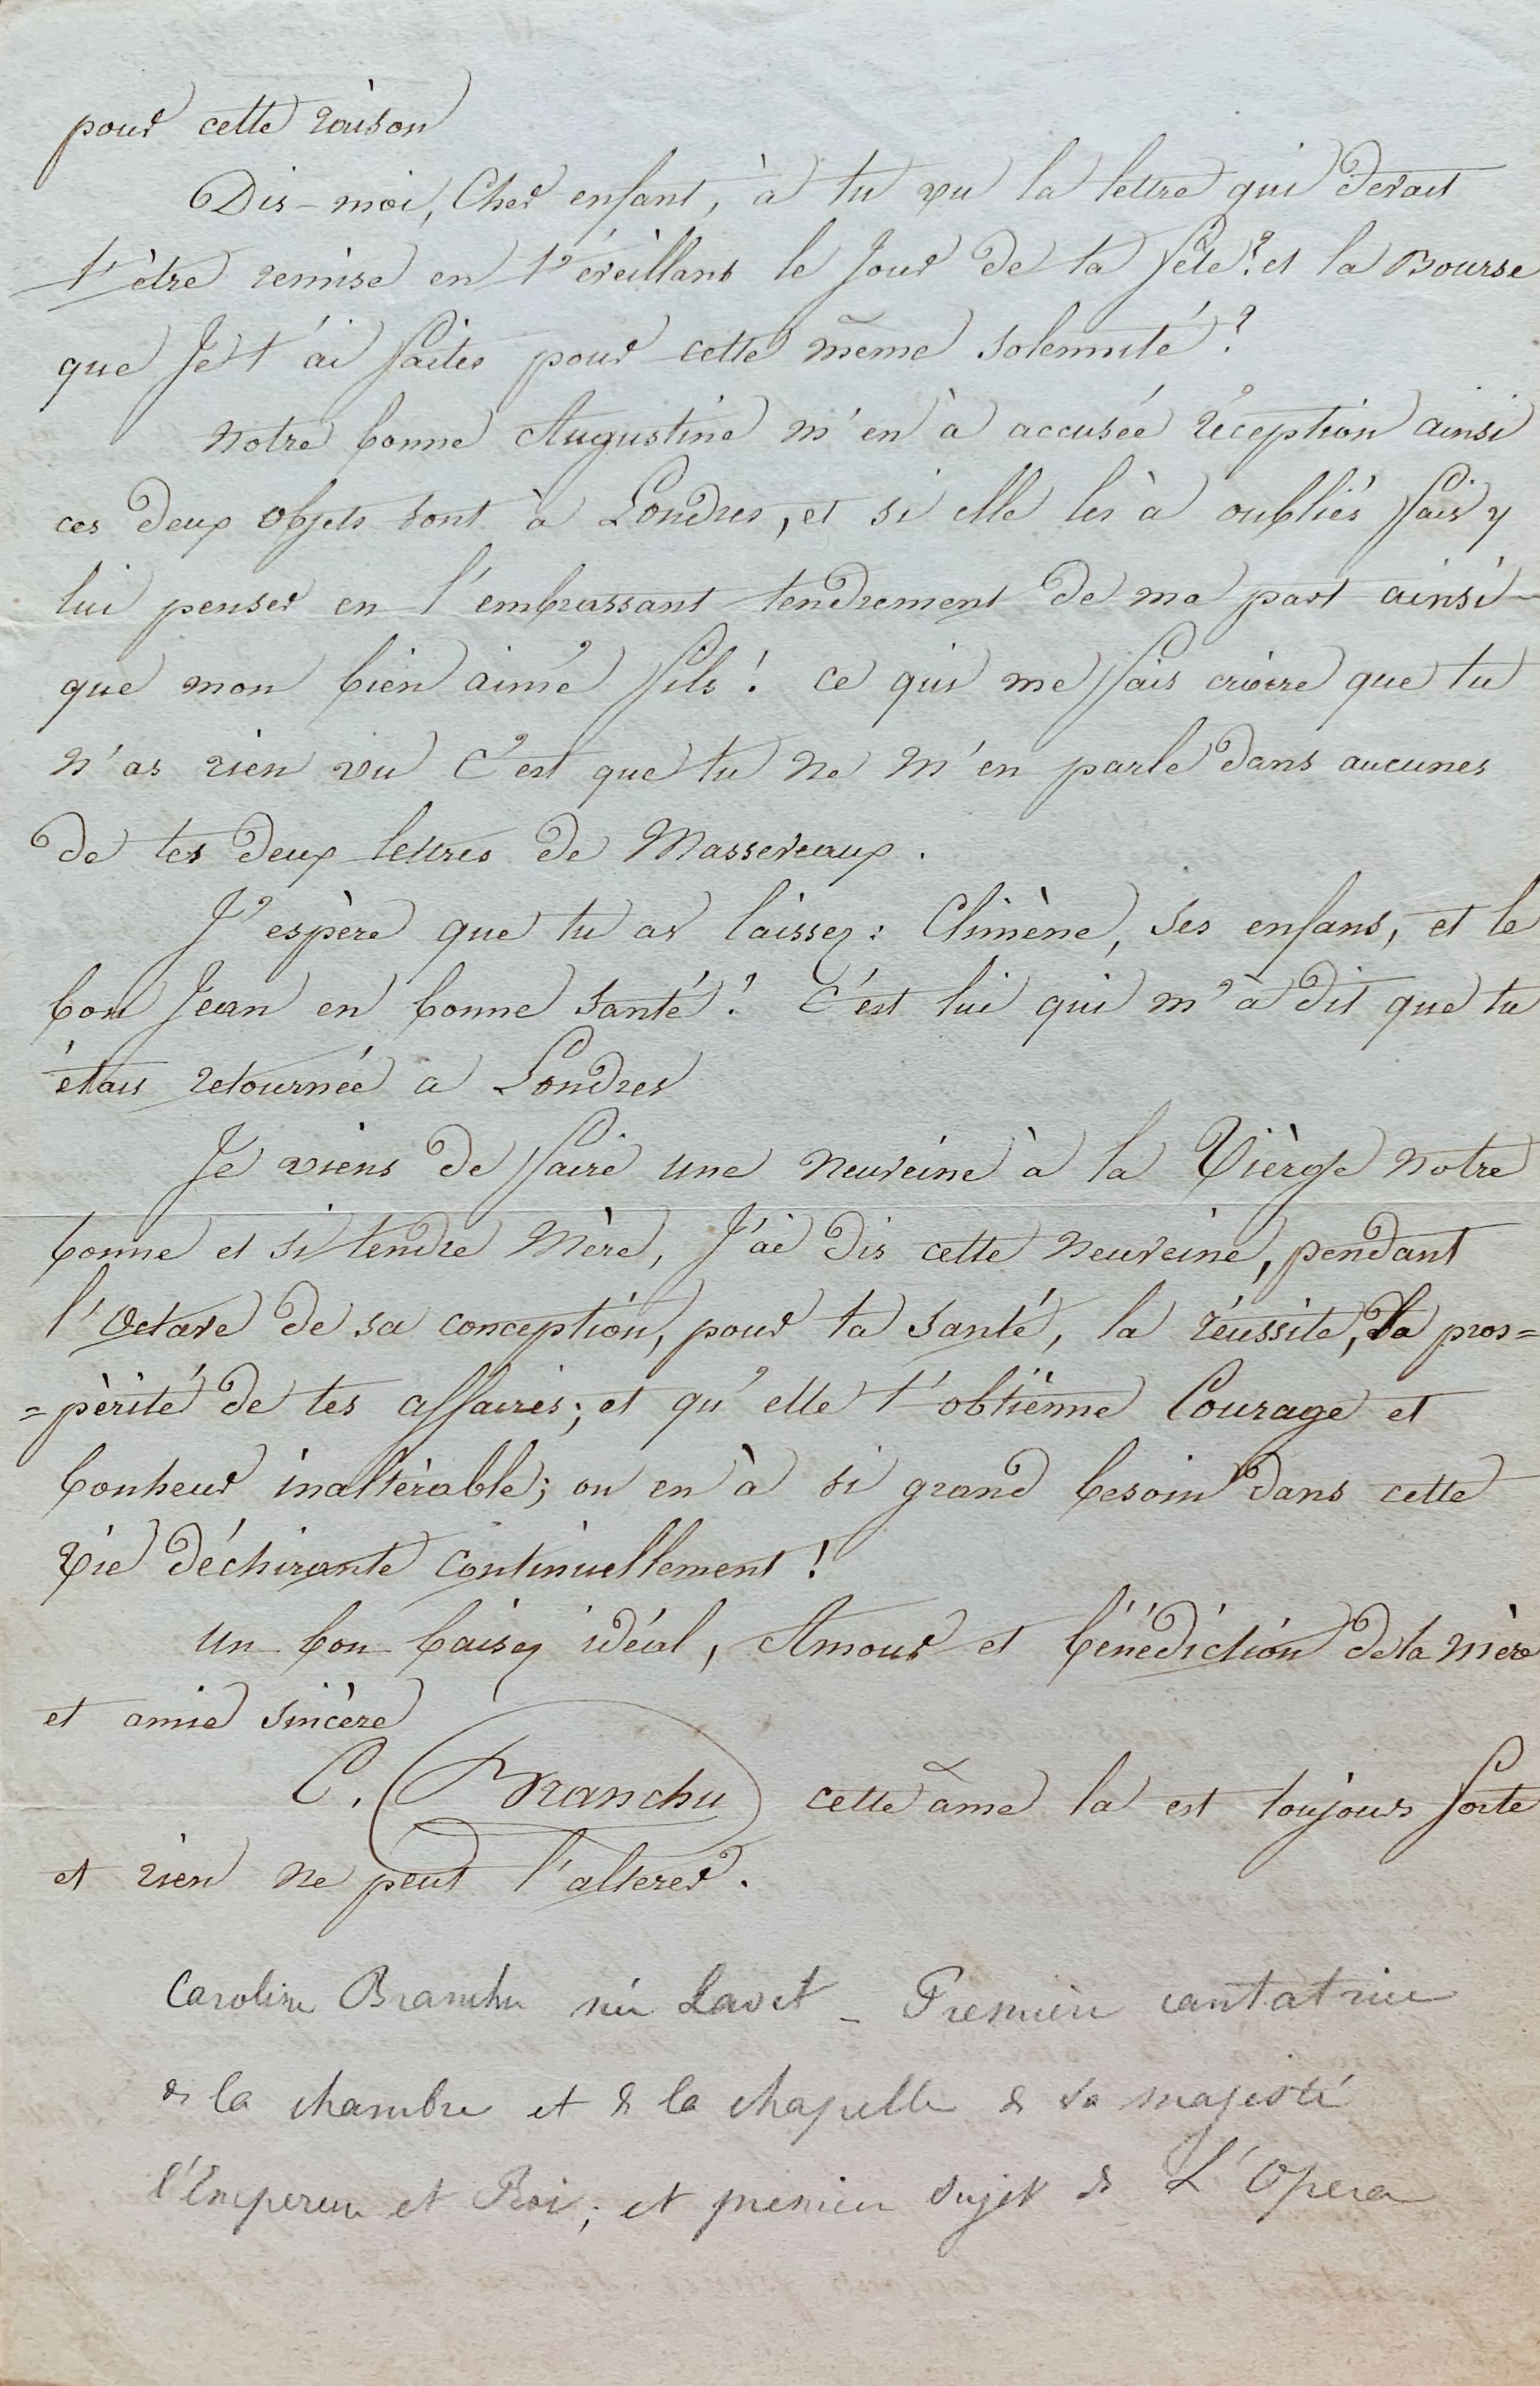 pour cette ràison
Dis-moi, Cher enfant, à tu vu la lettre qui devait
t'être remise en t'éveillant le Jour de ta fête? et la Bourse
que Je t'ai faites pour cette même solennité?
Notre bonne Augustine m'en à accusée réception ainsi
ces deux objets sont à Londres, et si elle les à oubliés fais y
lui penser en l'embrassant tendrement de ma part ainsi
que mon bien aimé fils! ce qui me fais croire que tu
n'as rien vu c'est que tu ne m'en parle dans aucunes
de tes deux lettres de Massereaux.
J'espère que tu as laissez: Climène, ses enfans, et le
bon Jean en bonne santé! c'est lui qui m'à dit que tu
étais retournée a Londres
Je viens de faire une neuveine à la Vièrge notre
bonne et si tendre Mère, J'ai dis cette neuveine, pendant
l'Octave de sa conception, pour ta santé, la réussite, la pros=
=pèrité de tes affaires; et qu'elle t'obtiènne Courage et
bonheur inaltèrable; on en à si grand besoin dans cette
vie déchirante continuellement!
un bon baisez idéal, Amour et bénédiction de ta mère
et amie sincère
C. Branchu cette âme la est toujours forte
et rien ne peut l'alterer.
Caroline Branchu née Lavet - Première cantatrice
de la chambre et de la chapelle de sa majesté
l'Empereur et Roi; et premier sujet de L'Opera